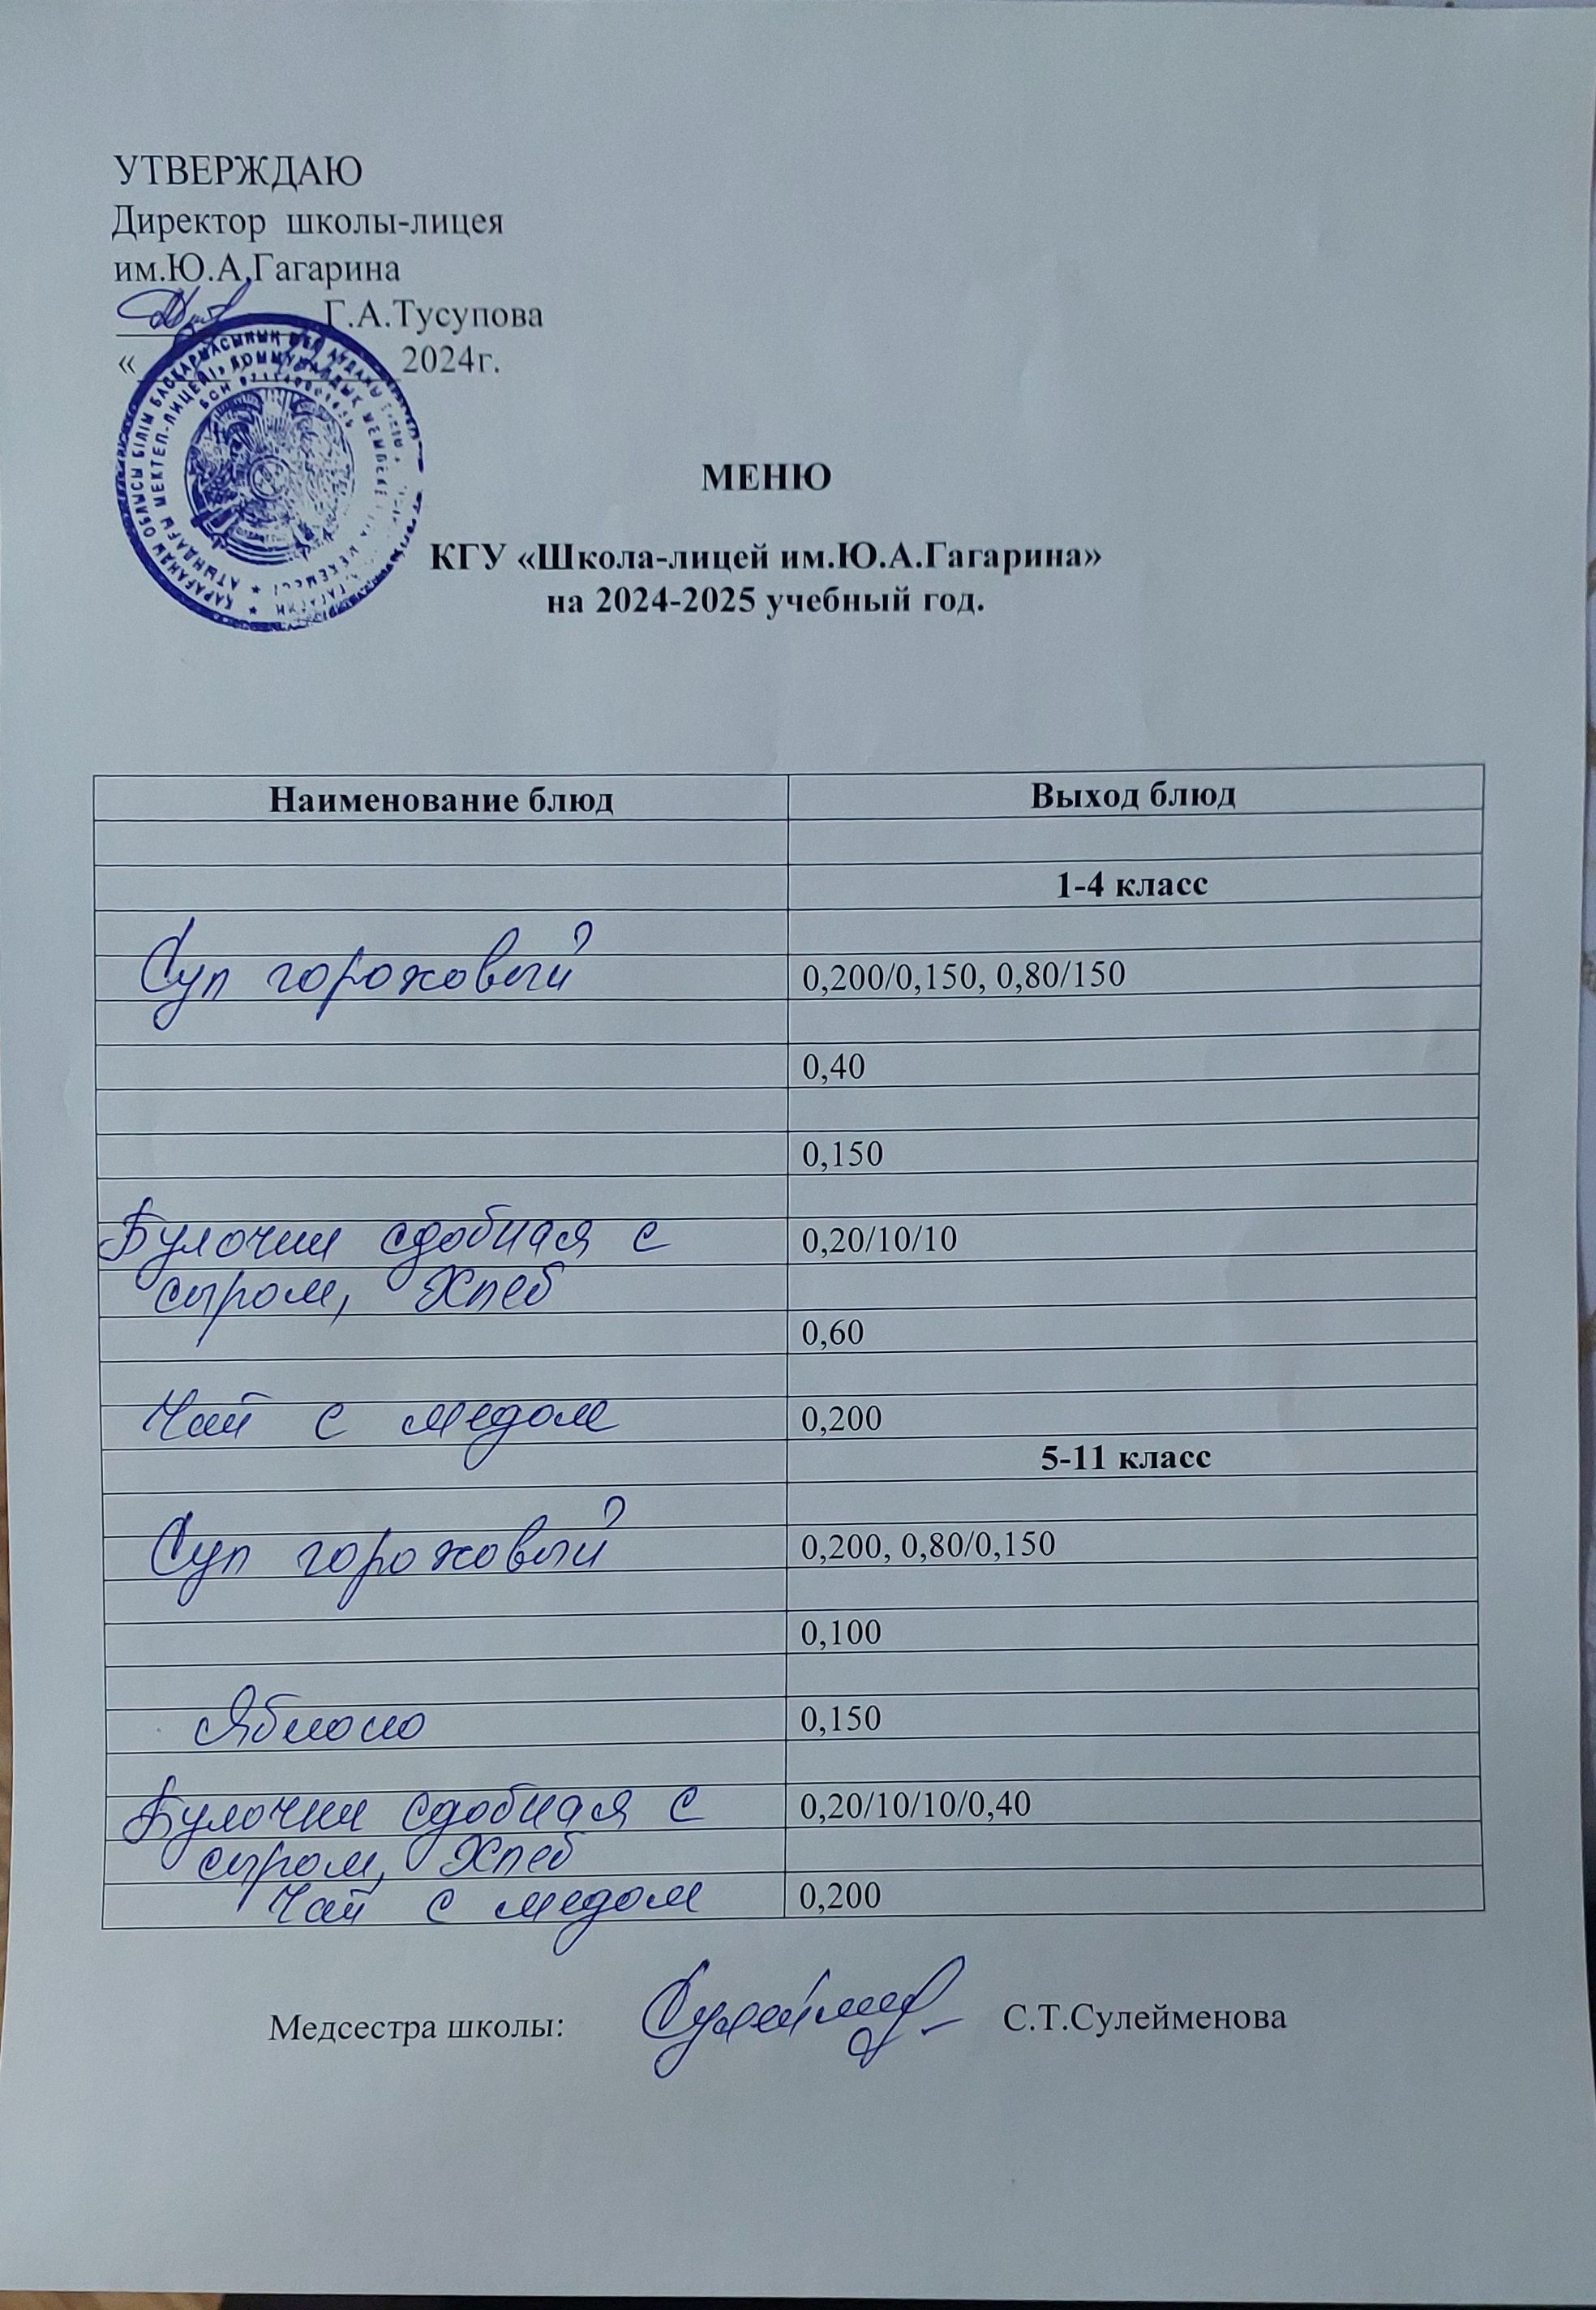 УТВЕРЖДАЮ
Директор школы-лицея
им.Ю.А.Гагарина
Г.А.Тусупова
« 2024г.
МЕНЮ
КГУ «Школа-лицей им.Ю.А.Гагарина»
на 2024-2025 учебный год.
Наименование блюд Выход блюд
1-4 класс
Суп гороховый 0,200/0,150, 0,80/150
0,40
0,150
Булочки сдобная с 0,20/10/10
сыром, Хлеб
0,60
Чай с медом 0,200
5-11 класс
Суп гороховый 0,200, 0,80/0,150
0,100
Яблоко 0,150
Булочки сдобная с 0,20/10/10/0,40
сыром, Хлеб
Чай с медом 0,200
Медсестра школы: С.Т.Сулейменова